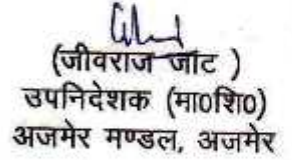 (जीवराज जाट )
उपनिदेशक (मा०शि०)
अजमेर मण्डल, अजमेर